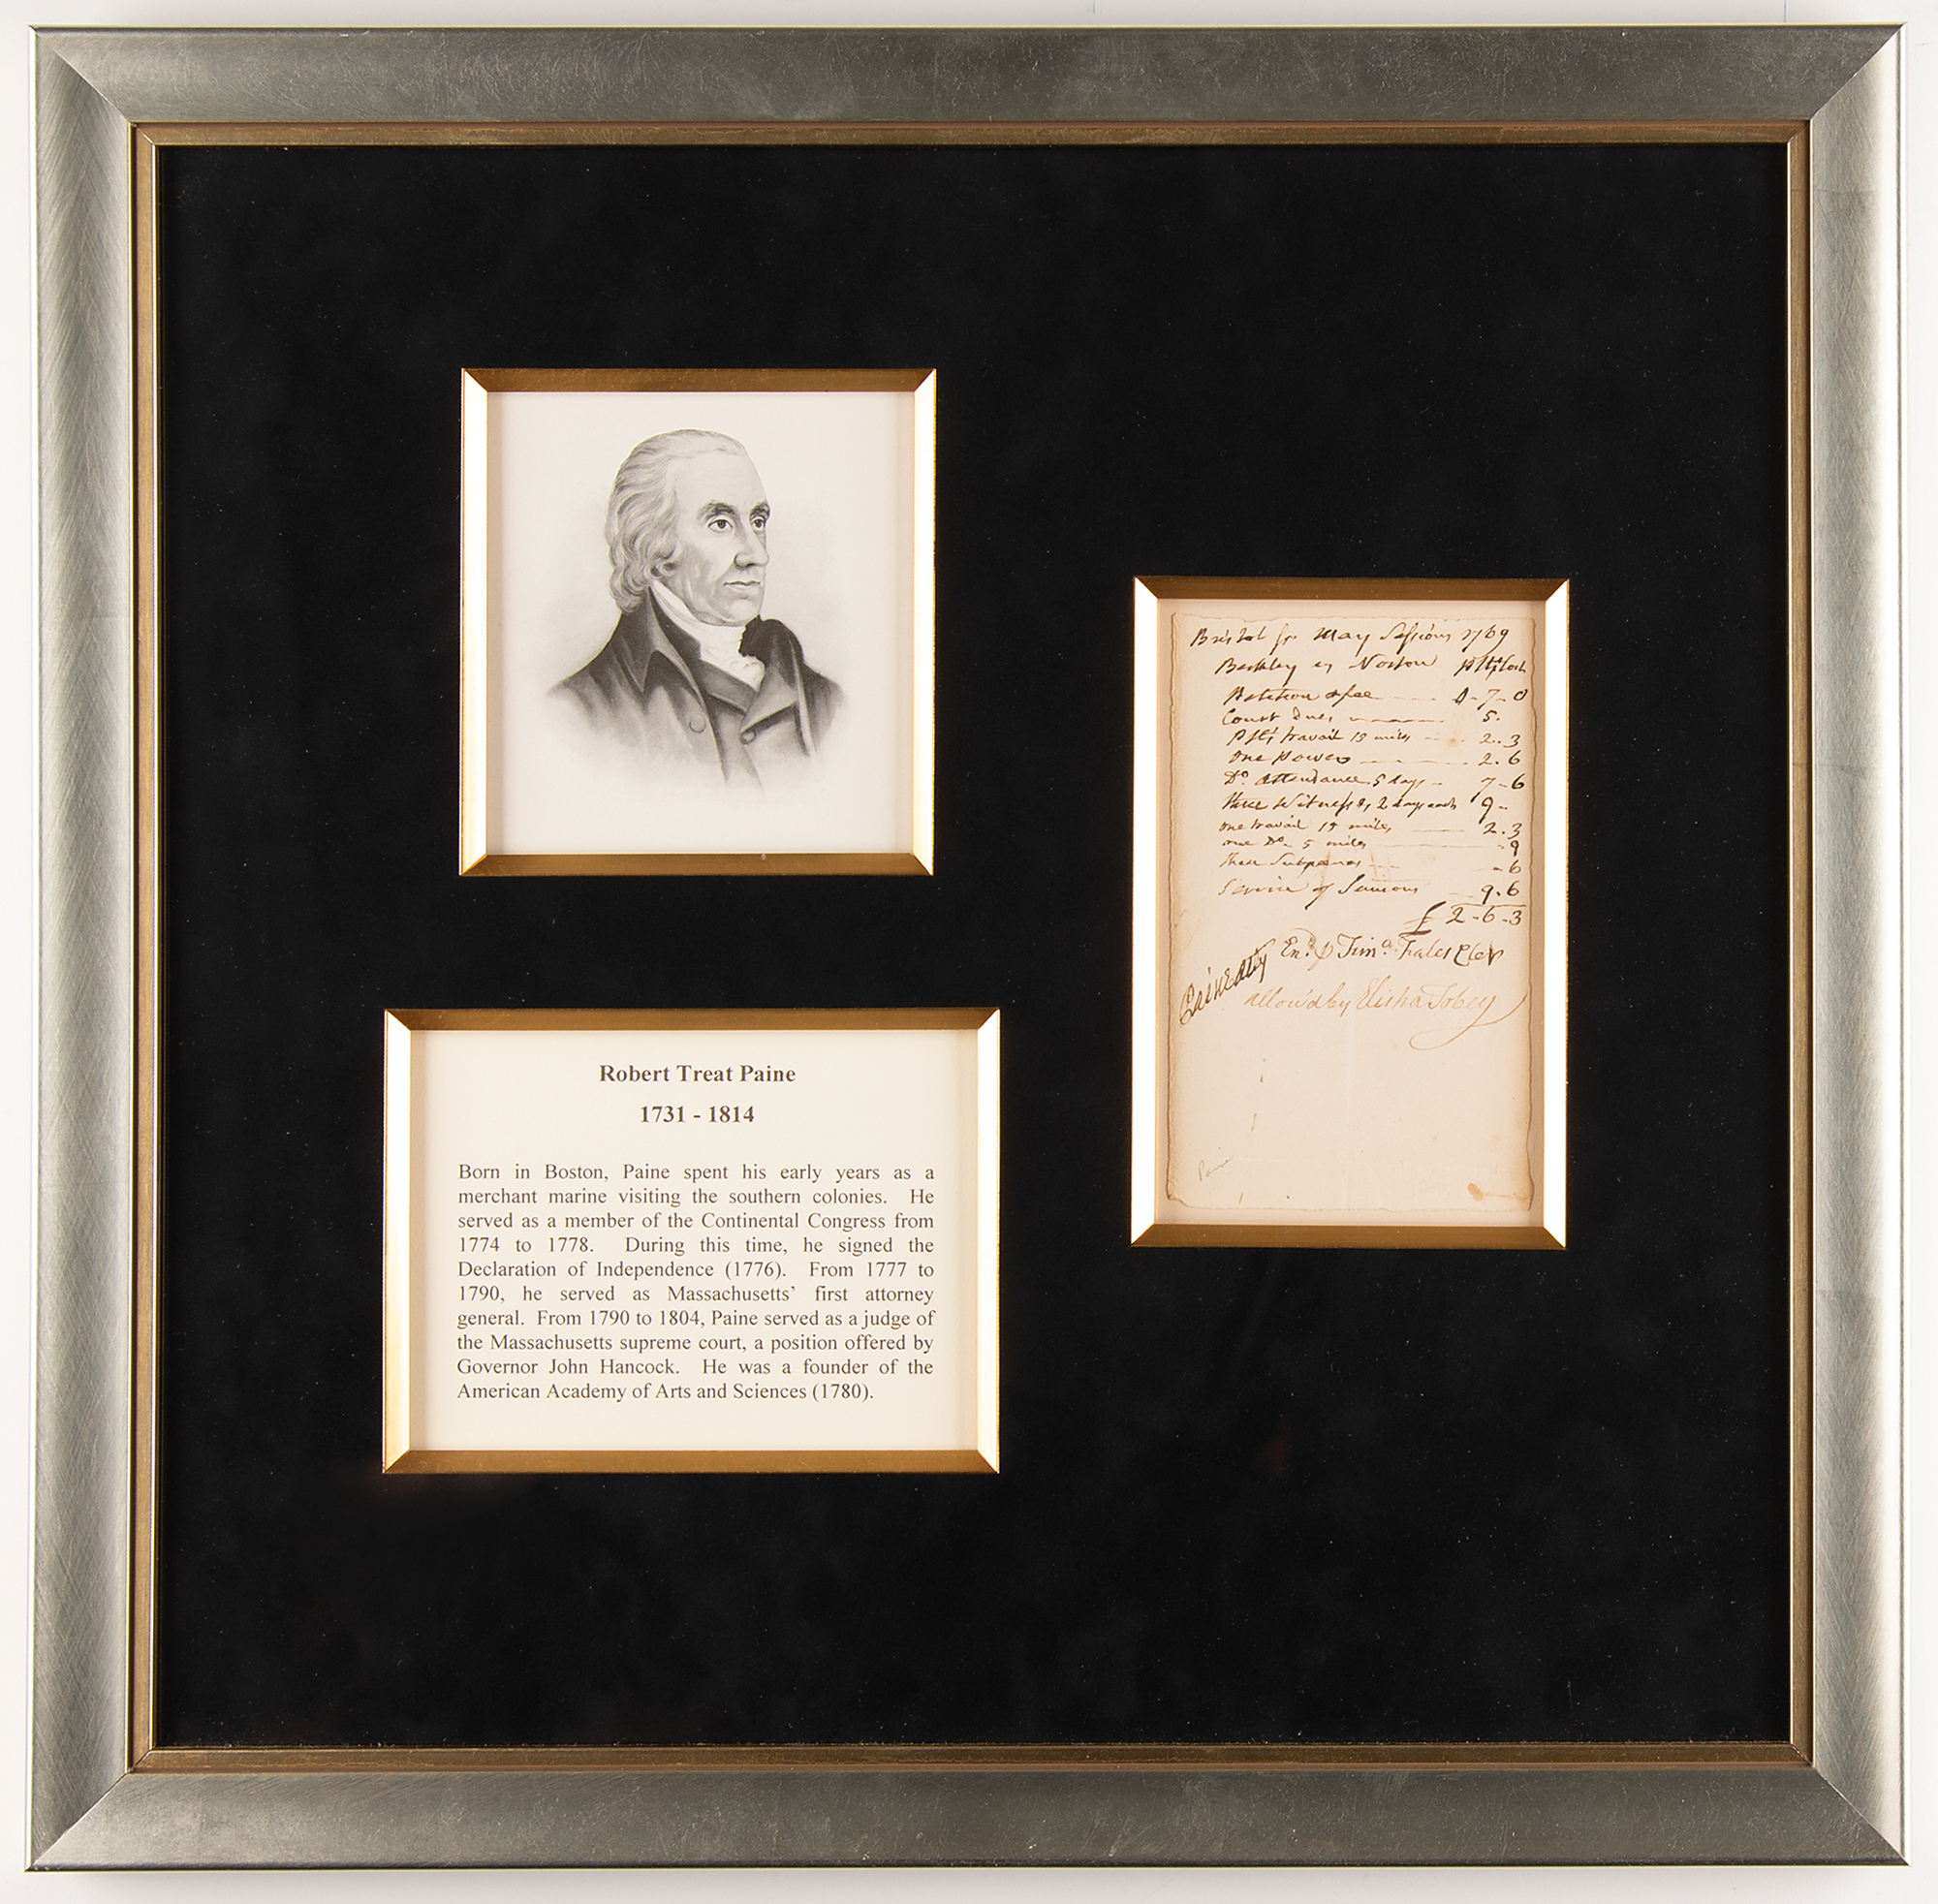 Robert Treat Paine
1731 - 1814
Born in Boston, Paine spent his early years as a
merchant marine visiting the southern colonies. He
served as a member of the Continental Congress from
1774 to 1778. During this time, he signed the
Declaration of Independence (1776). From 1777 to
1790, he served as Massachusetts' first attorney
general. From 1790 to 1804, Paine served as a judge of
the Massachusetts supreme court, a position offered by
Governor John Hancock. He was a founder of the
American Academy of Arts and Sciences (1780).
Bristol fs. May Sessions 1769
Berkley Norton
7-0
Court Dues 5.
travail 15 miles 2.3
One power 2.6
Do Attendance 5 days 7-6
three Witnesses, 2 days each 9-
one travail 15 miles, 2.3
one Do 5 miles 9
three Subpoenas -6
Service of Sumons 9.6
£ 2-6-3
Timo Fales Cler
Paine atty
allow'd by Elisha Tobey
Paine